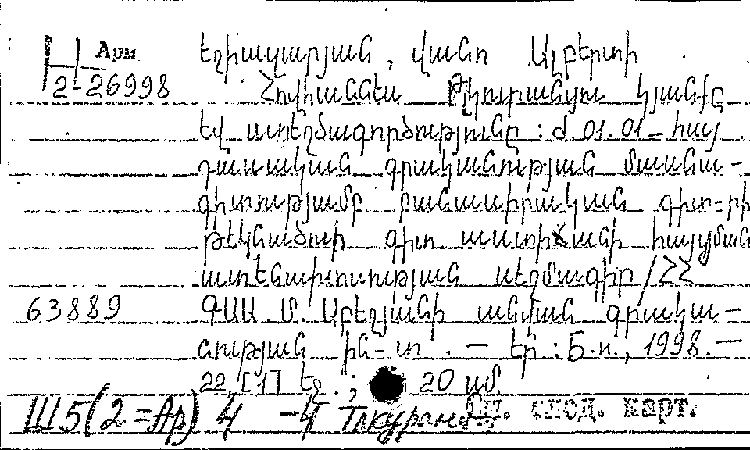 Арм
2-26998
Եղիազարյան, Վանո Ալբերտի
Հովհաննես Թլկուրանցու կյանքը
եվ ստեղծագործությունը : Ժ 01.01 – հայ
դասական գրականության մասնա-
գիտությամբ բանասիրական գիտ-րի
թեկնածուի գիտ աստիճանի հայցման
ատենախոսության սեղմագիր / ՀՀ
63889 ԳԱԱ Մ. Աբեղյանի անվան գրակա-
նության ին-տ . – Եր : Б.и., 1998.–
22 [1] էջ . ; 20 սմ
Ш5(2=Ар)4 -4 Тлкуранци См. след. карт.